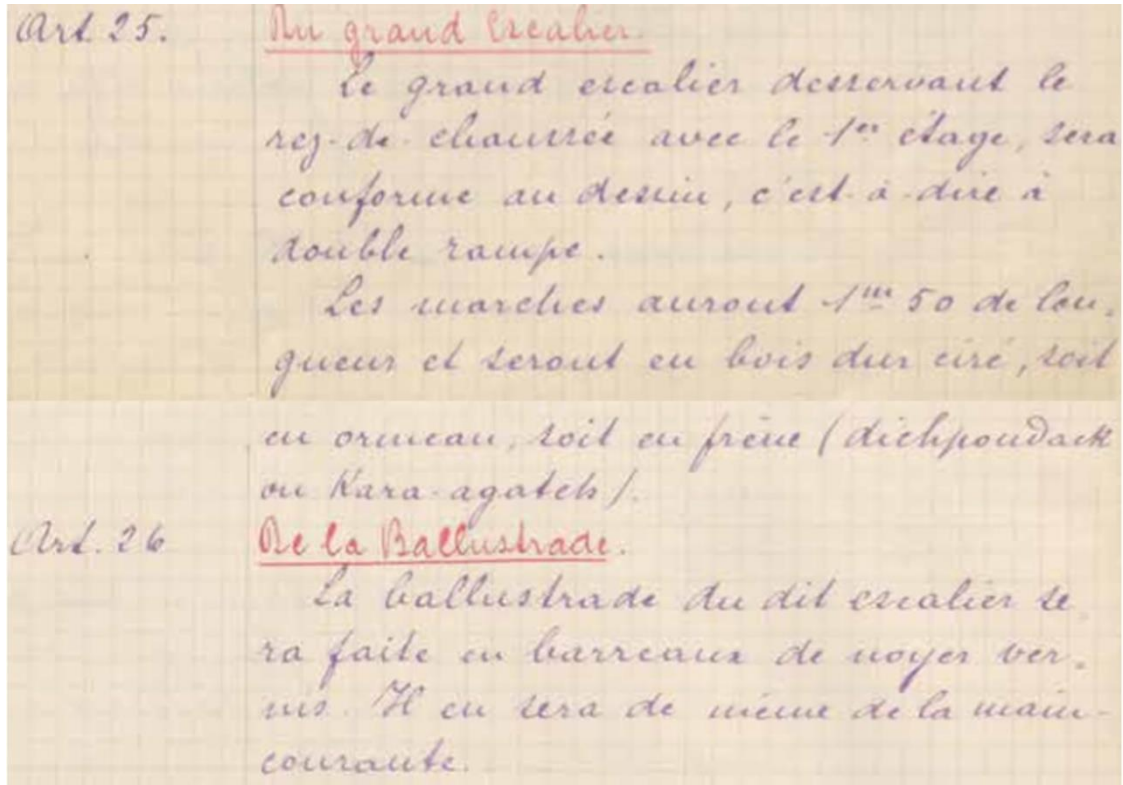 Art. 25. Du grand Escalier.
Le grand escalier desservant le
rez-de-chaussée avec le 1er étage, sera
conforme au dessin, c'est-à-dire à
double rampe.
Les marches auront 1m 50 de lon-
gueur et seront en bois dur ciré, soit
en ormeau, soit en frêne (dichpoudack
ou Kara-agatch).
Art. 26 De la Ballustrade.
La ballustrade du dit escalier se
ra faite en barreaux de noyer ver-
nis. Il en sera de même de la main-
courante.